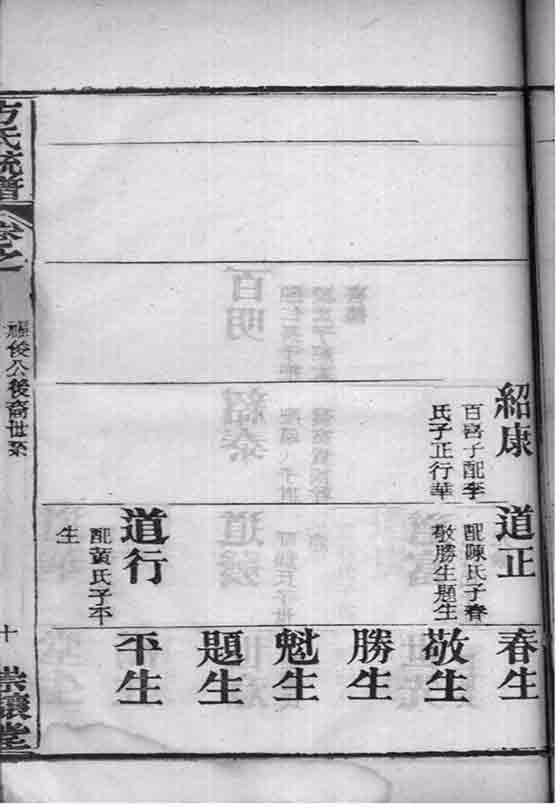 紹康
百喜子配李
氏子正行華
道正
配陳氏子春
敬勝生題生
道行
配黃氏子平
生
春生
敬生
勝生
魁生
題生
平生
方氏統譜
卷之
俊公後裔世系
十
堂